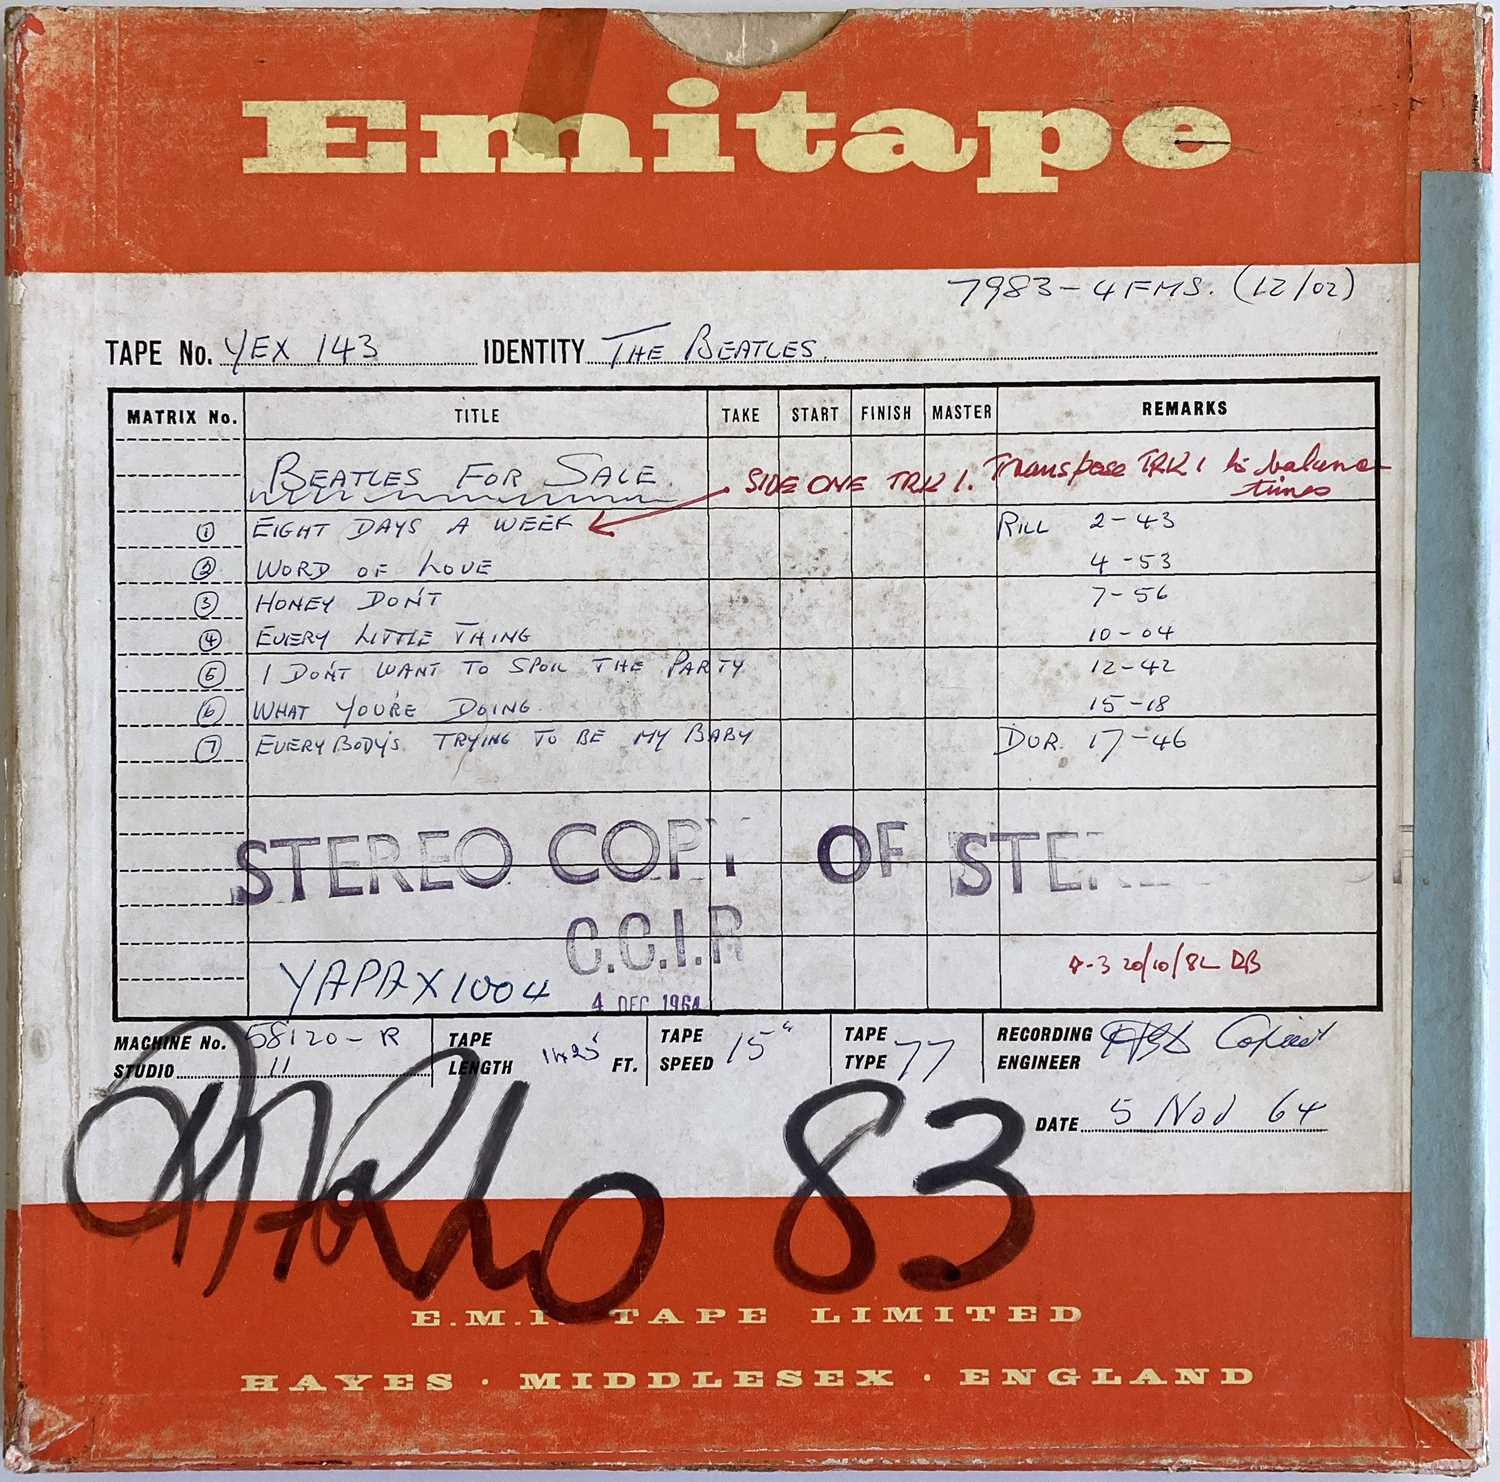 Emitape
7983-4FMS. (12/02)
TAPE No. YEX 143 IDENTITY THE BEATLES.
MATRIX No. TITLE TAKE START FINISH MASTER REMARKS
BEATLES FOR SALE. SIDE ONE TRK 1. Transpose TRK 1 to balance
times
① EIGHT DAYS A WEEK RILL 2-43
② WORD OF LOVE 4-53
③ HONEY DON'T 7-56
④ EVERY LITTLE THING 10-04
⑤ I DON'T WANT TO SPOIL THE PARTY 12-42
⑥ WHAT YOU'RE DOING. 15-18
⑦ EVERYBODY'S TRYING TO BE MY BABY DUR. 17-46
STEREO COPY OF STE
C.C.I.R
YAPAX 1004 4 DEC 1964
20/10/82 DB
MACHINE No. 58120-R TAPE LENGTH 1425' FT. TAPE SPEED 15" TAPE TYPE 77 RECORDING ENGINEER
STUDIO 11
DATE 5 Nov 64
83
E.M.I. TAPE LIMITED
HAYES · MIDDLESEX · ENGLAND